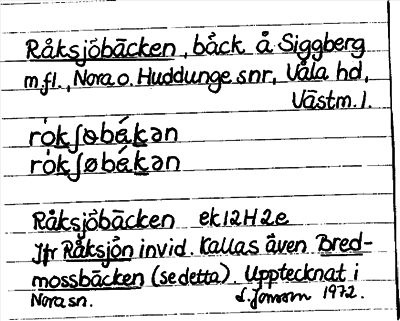 Råksjöbäcken, bäck å Siggberg
m.fl., Nora o. Huddunge snr, Våla hd,
Västm. l.
rȯkʃɵbákən
rȯkʃøbákən
Råksjöbäcken ek 12H2e
Jfr Råksjön invid. Kallas även Bred-
mossbäcken (se detta). Upptecknat i
Nora sn. S. Jonsson 1972.